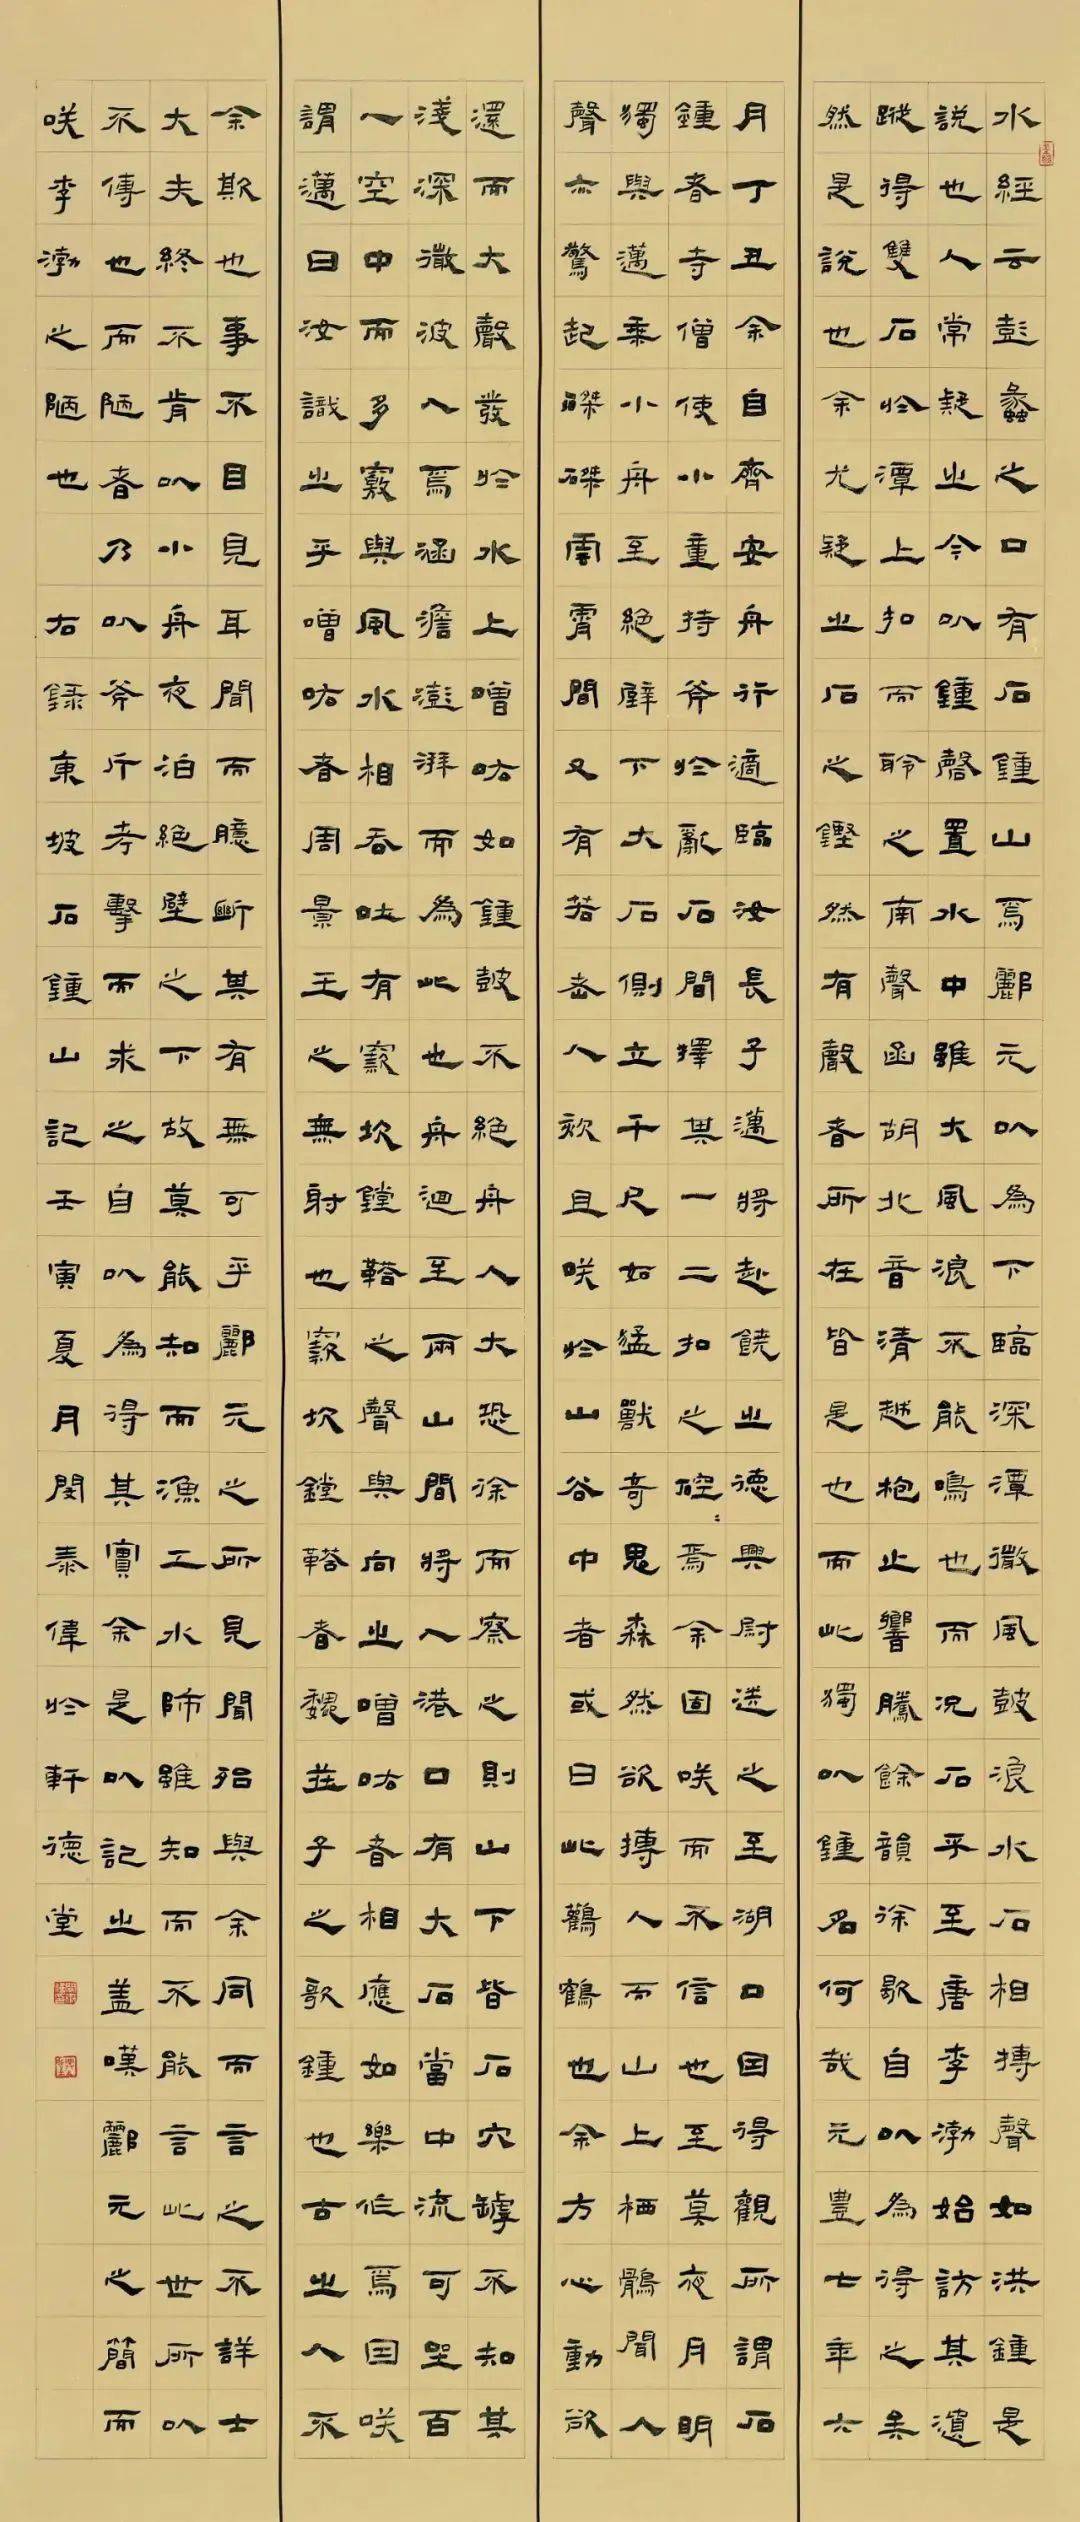 水經云彭蠡之口有石鍾山焉酈元以為下臨深潭微風鼓浪水石相搏聲如洪鍾是
說也人常疑之今以鍾磬置水中雖大風浪不能鳴也而況石乎至唐李渤始訪其遺
蹤得雙石於潭上扣而聆之南聲函胡北音清越枹止響騰餘韻徐歇自以為得之矣
然是說也余尤疑之石之鏗然有聲者所在皆是也而此獨以鍾名何哉元豐七年六
月丁丑余自齊安舟行適臨汝長子邁將赴饒之德興尉送之至湖口因得觀所謂石
鍾者寺僧使小童持斧於亂石間擇其一二扣之硿硿焉余固咲而不信也至莫夜月明
獨與邁乘小舟至絕壁下大石側立千尺如猛獸奇鬼森然欲搏人而山上栖鶻聞人
聲亦驚起磔磔雲霄間又有若老人欬且咲於山谷中者或曰此鸛鶴也余方心動欲
還而大聲發於水上噌吰如鍾鼓不絕舟人大恐徐而察之則山下皆石穴罅不知其
淺深微波入焉涵澹澎湃而為此也舟迴至兩山間將入港口有大石當中流可坐百
人空中而多竅與風水相吞吐有窾坎鏜鞳之聲與向之噌吰者相應如樂作焉因咲
謂邁曰汝識之乎噌吰者周景王之無射也窾坎鏜鞳者魏莊子之歌鍾也古之人不
余欺也事不目見耳聞而臆斷其有無可乎酈元之所見聞殆與余同而言之不詳士
大夫終不肯以小舟夜泊絕壁之下故莫能知而漁工水師雖知而不能言此世所以
不傳也而陋者乃以斧斤考擊而求之自以為得其實余是以記之盖嘆酈元之簡而
咲李渤之陋也 右錄東坡石鍾山記壬寅夏月閔泰偉於軒德堂